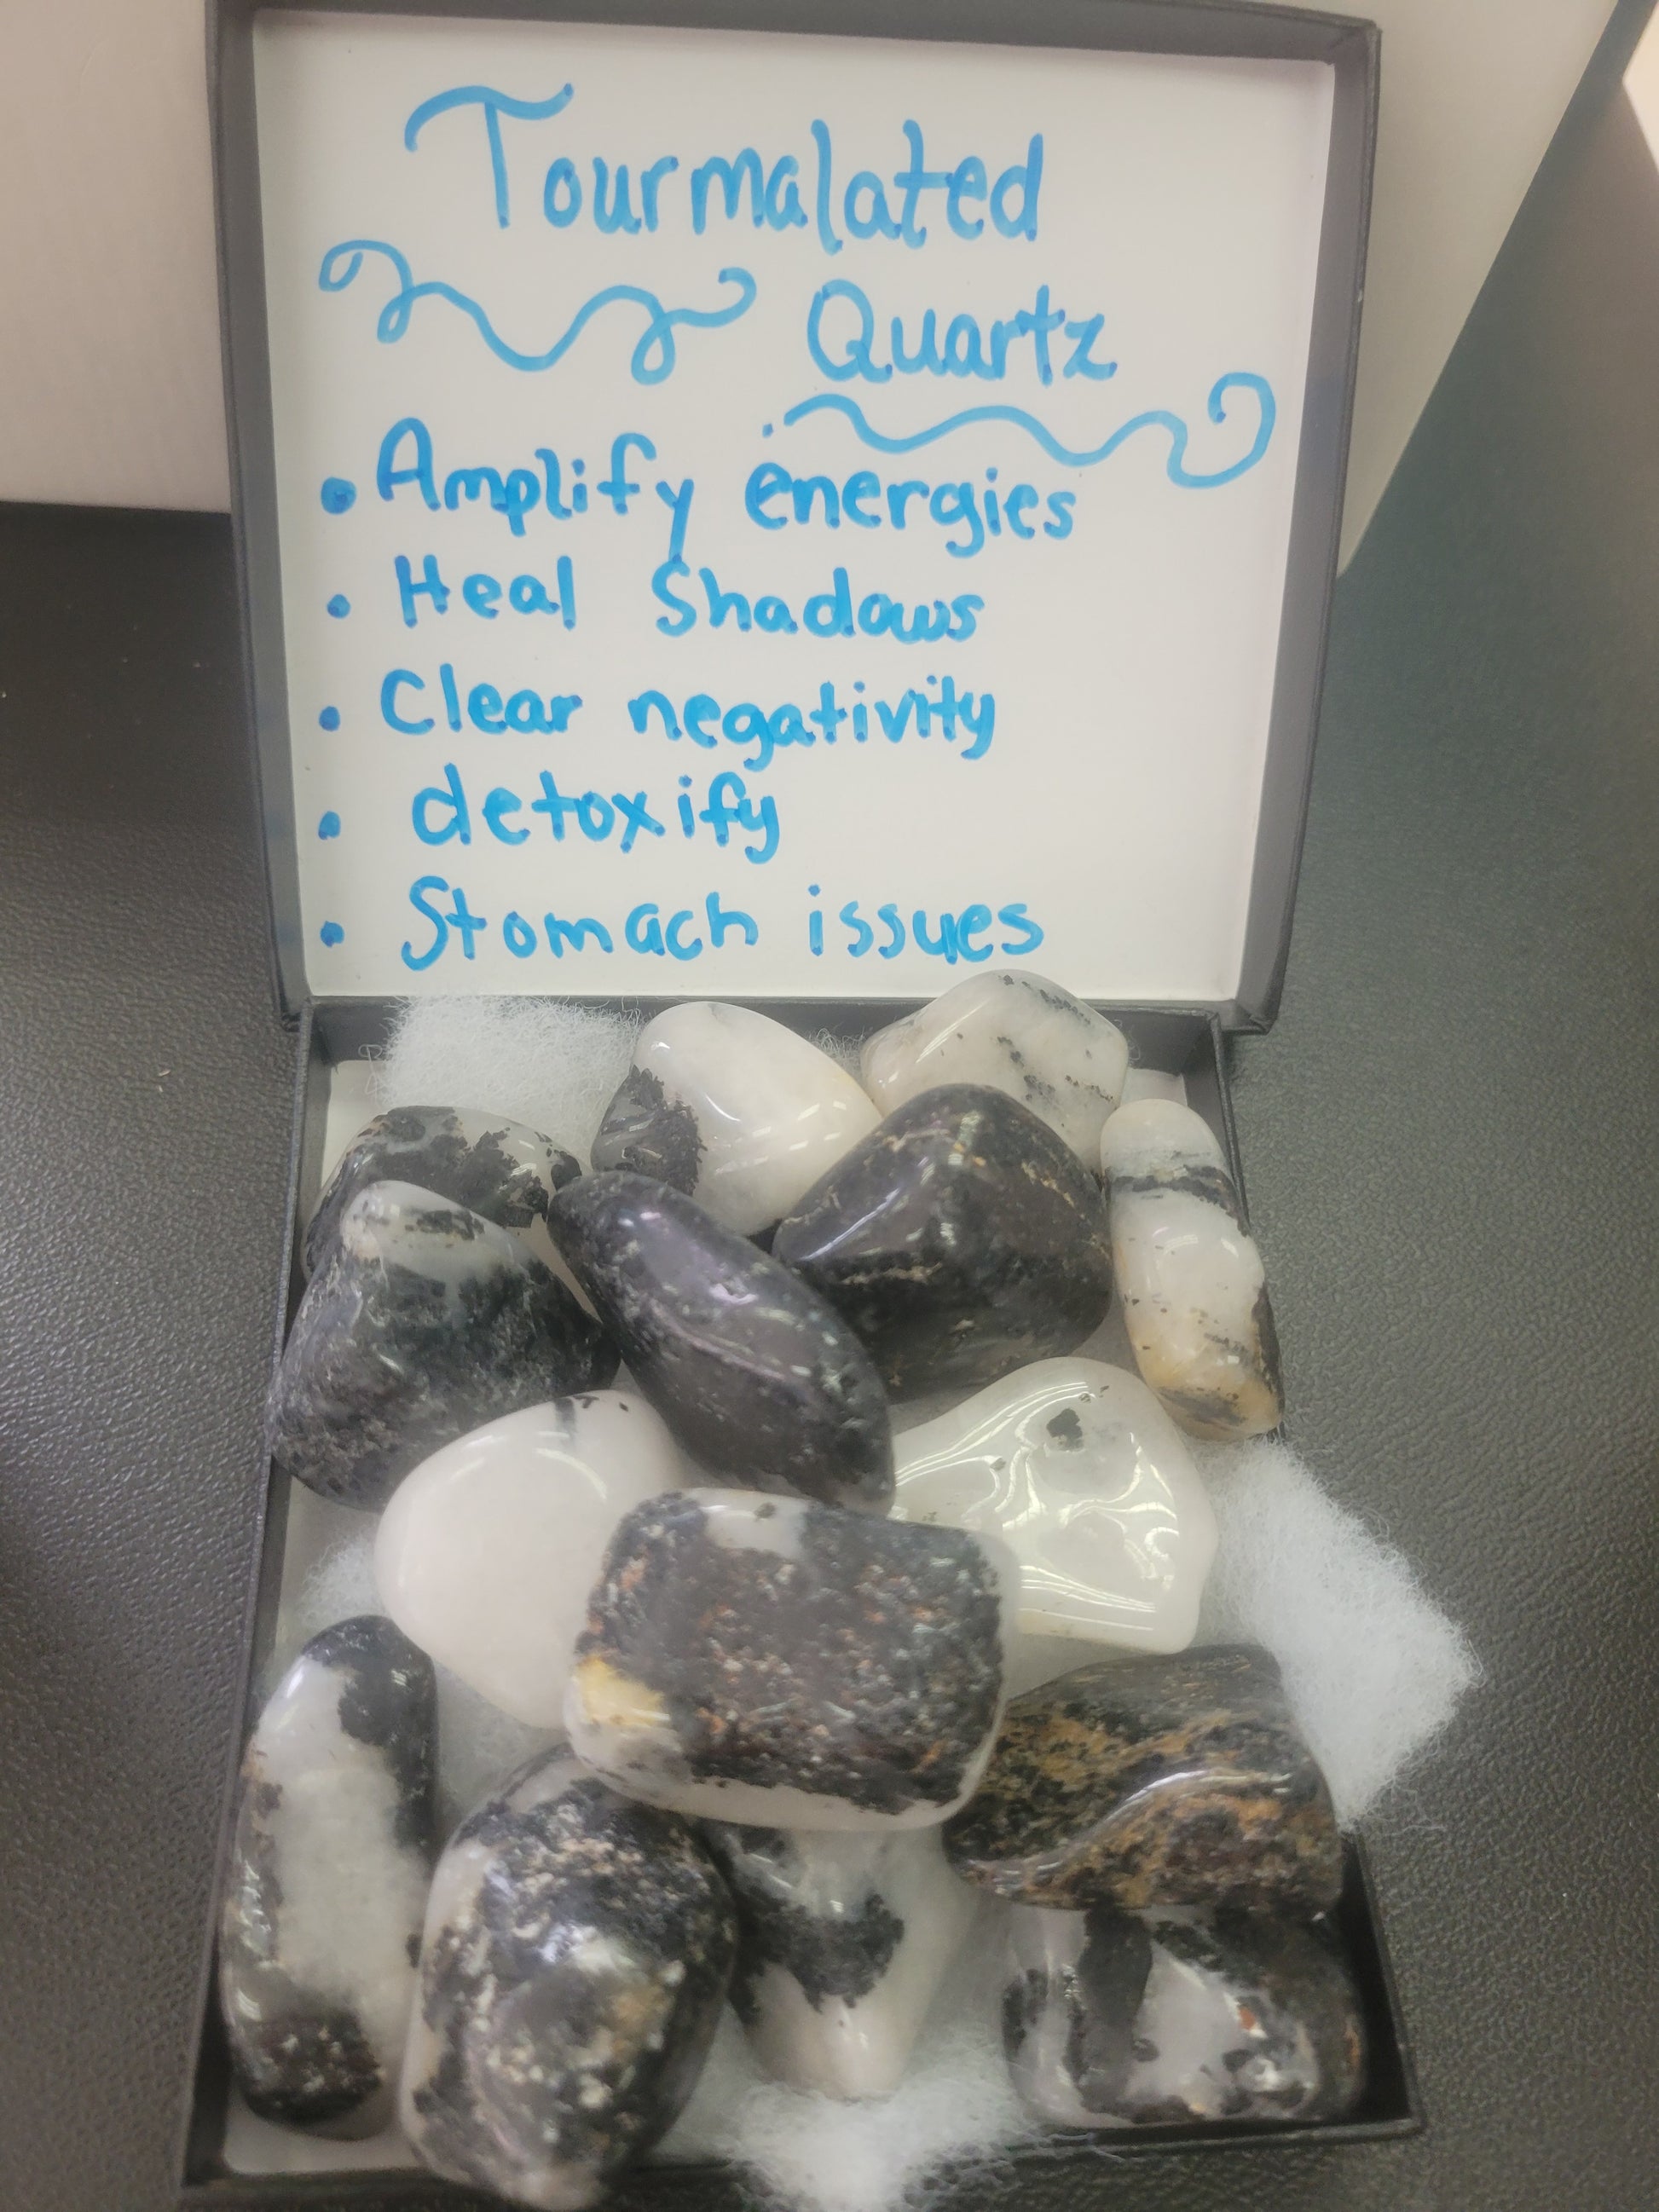 Tourmalated
Quartz
• Amplify energies
• Heal Shadows
• Clear negativity
• detoxify
• Stomach issues